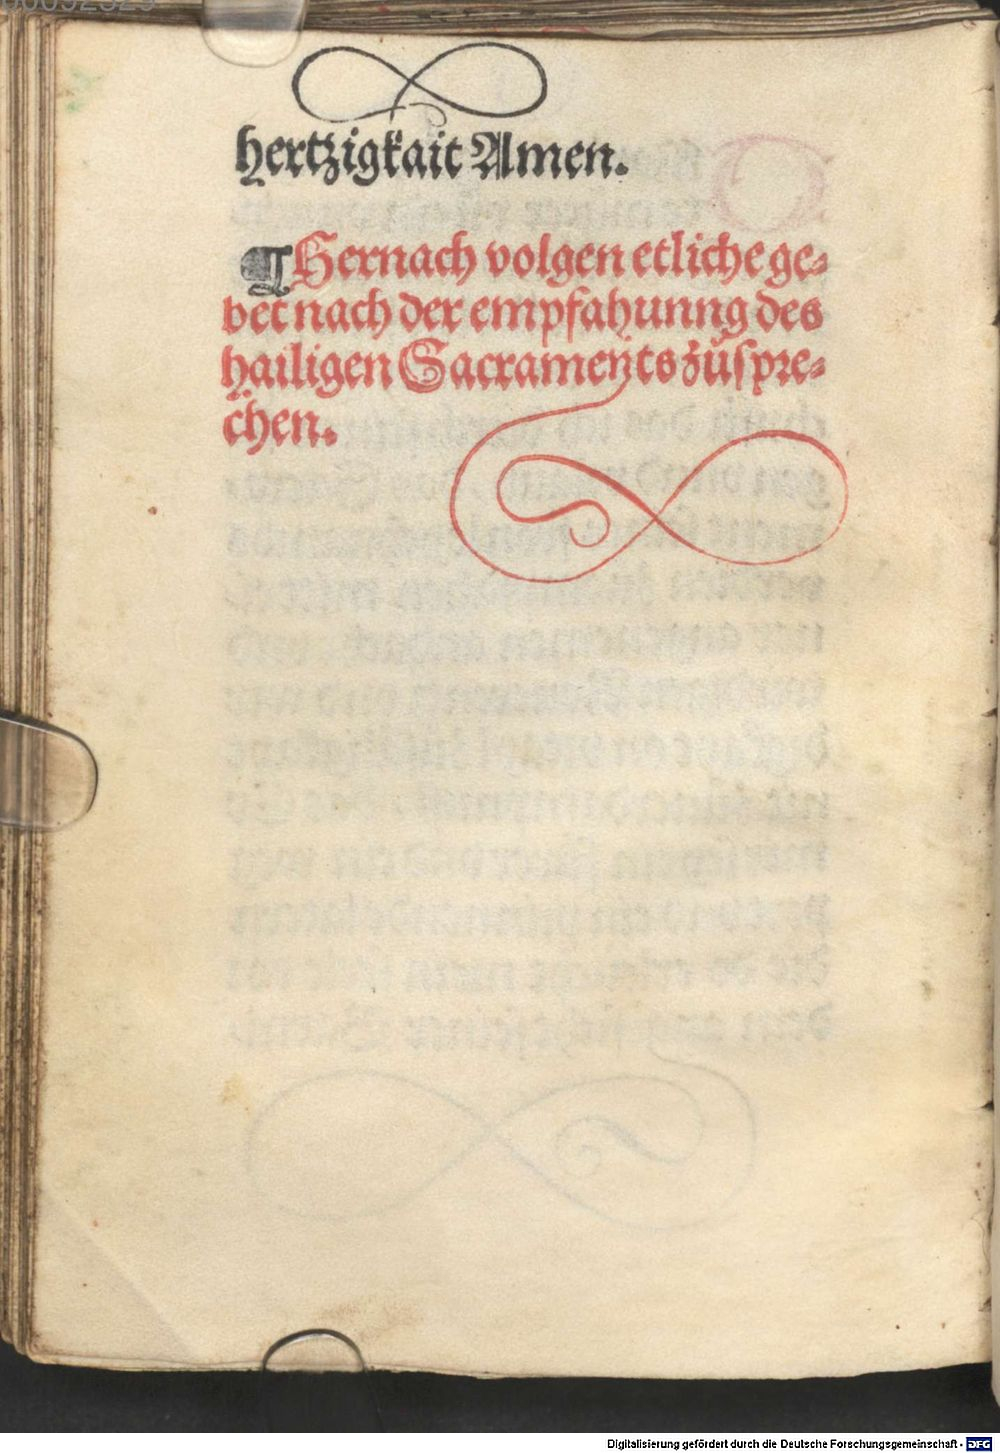 hertzigkait Amen.
¶ Hernach volgen etliche ge⸗
bet nach der empfahunng des
hailigen Sacraments zůspre⸗
chen.
Digitalisierung gefördert durch die Deutsche Forschungsgemeinschaft - DFG